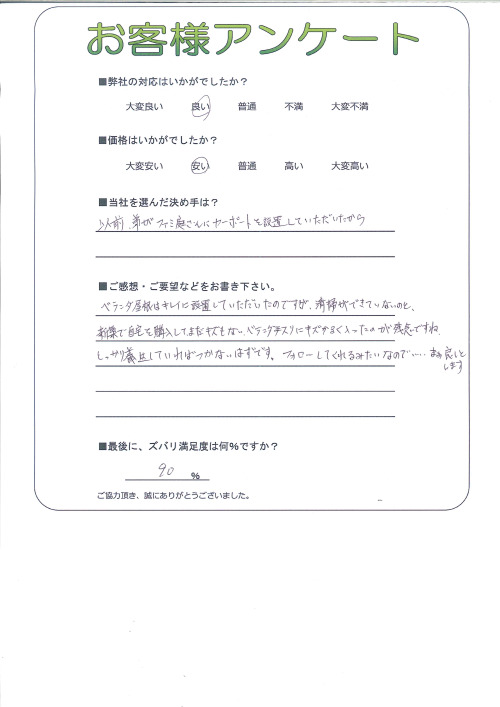 お客様アンケート
■弊社の対応はいかがでしたか？
大変良い　良い　普通　不満　大変不満
■価格はいかがでしたか？
大変安い　安い　普通　高い　大変高い
■当社を選んだ決め手は？
以前、弟がファミ庭さんにカーポートを設置していただいたから
■ご感想・ご要望などをお書き下さい。
ベランダ屋根はキレイに設置していただいたのですが、清掃ができていないのと、
新築で自宅を購入してまだキズもないベランダ手スリにキズが入ったのが残念ですね。
しっかり養生していればつかないはずです。フォローしてくれるみたいなので‥‥まあ良しと
します
■最後に、ズバリ満足度は何％ですか？
90 ％
ご協力頂き、誠にありがとうございました。